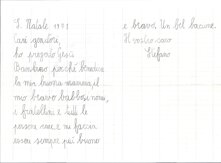 S. Natale 1921
Cari genitori,
ho pregato Gesù
Bambino perché benedica
la mia buona mamma, il
mio bravo babbo, i nonni,
i fratellini e tutti le
persone care e mi faccia
essere sempre più buono
e bravo. Un bel bacione.
Il vostro caro
Stefano